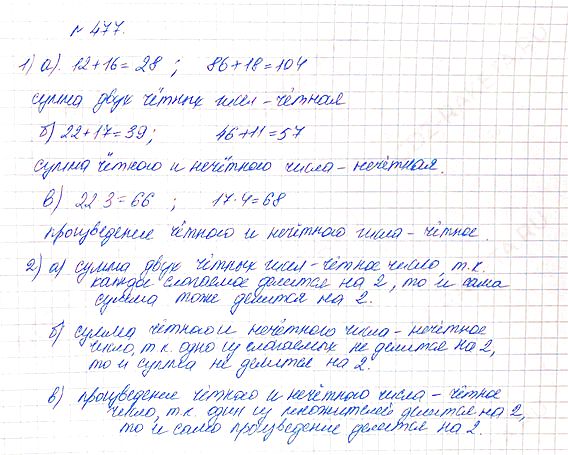 № 477.
1) а). 12+16=28 ; 86+18=104
сумма двух чётных чисел - чётная
б) 22+17=39; 46+11=57
сумма чётного и нечётного числа - нечётная.
в) 22 3=66 ; 17·4=68
произведение чётного и нечётного числа - чётное.
2) а) сумма двух чётных чисел - чётное число, т.к.
каждое слагаемое делится на 2, то и сама
сумма тоже делится на 2.
б) сумма чётного и нечётного числа - нечётное
число, т.к. одно из слагаемых не делится на 2,
то и сумма не делится на 2.
в) произведение чётного и нечётного числа - чётное
число, т.к. один из множителей делится на 2,
то и само произведение делится на 2.